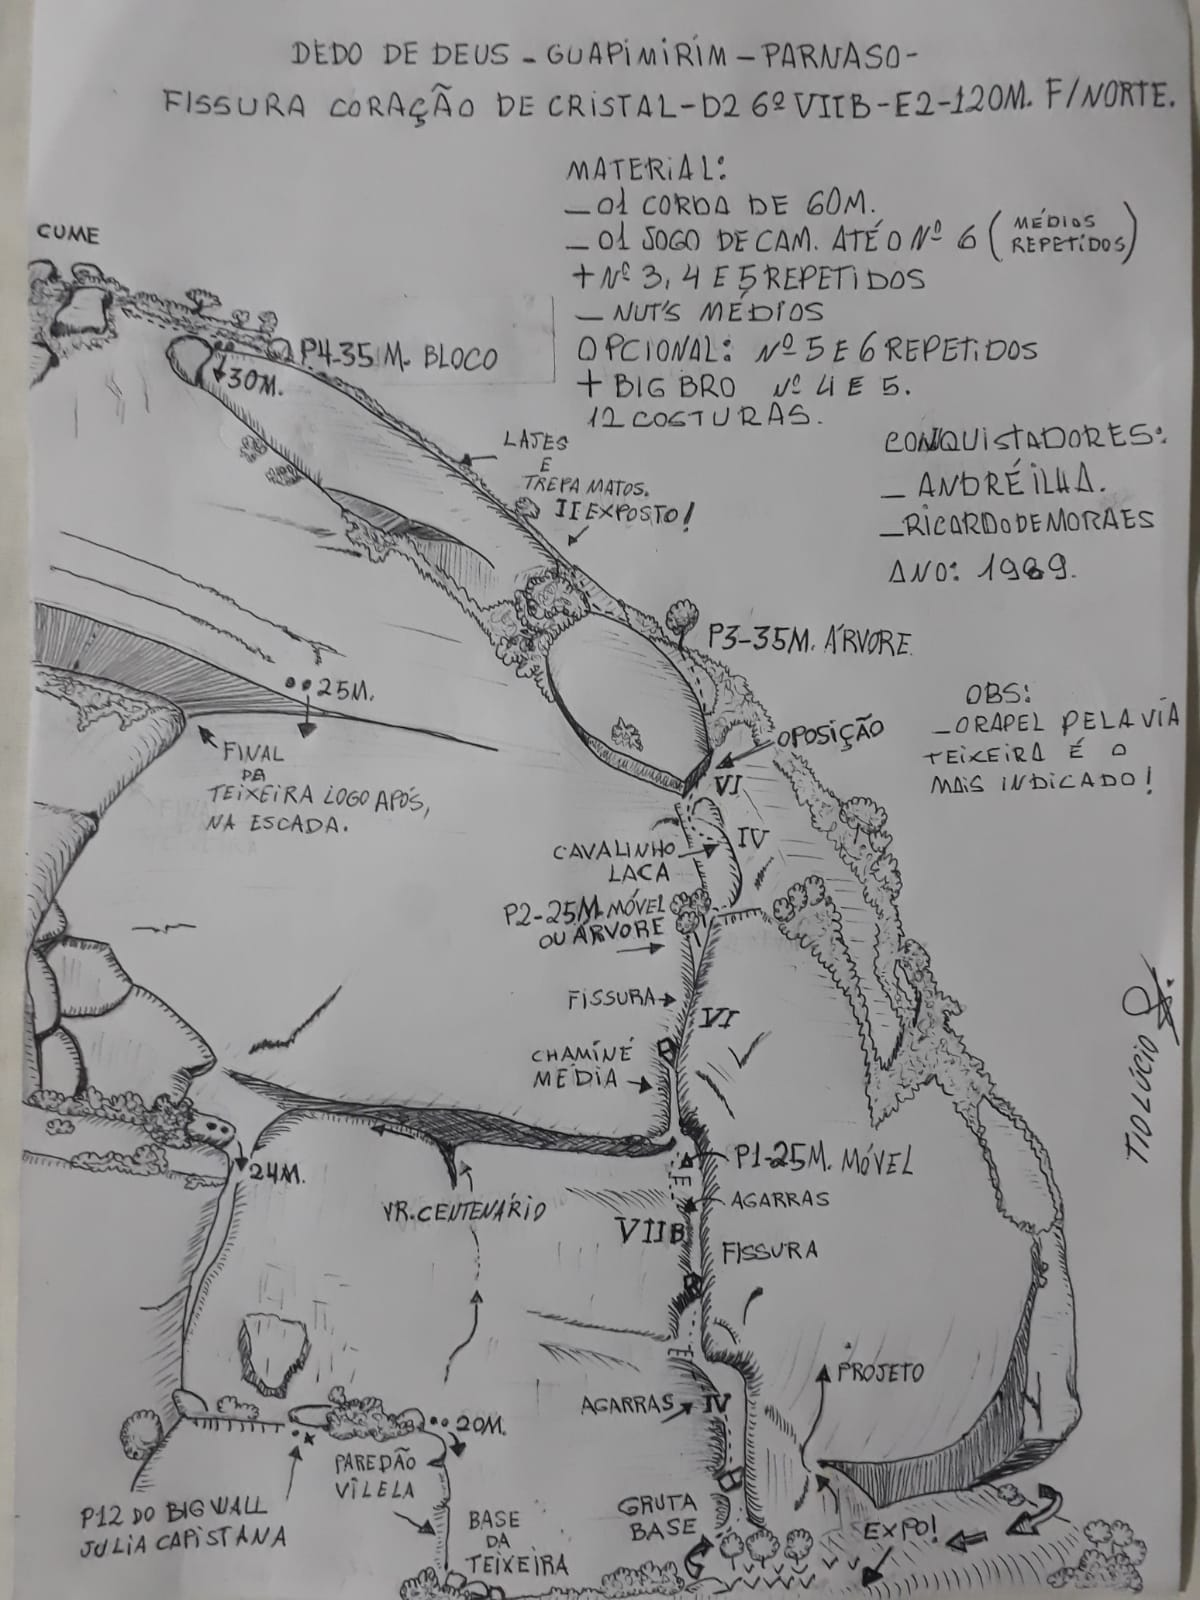 DEDO DE DEUS - GUAPIMIRIM - PARNASO -
FISSURA CORAÇÃO DE CRISTAL - D2 6º VIIB - E2 - 120M. F/NORTE.
MATERIAL:
- 01 CORDA DE 60M.
- 01 JOGO DE CAM. ATÉ O Nº 6 (MÉDIOS REPETIDOS)
+ Nº 3, 4 E 5 REPETIDOS
- NUT'S MÉDIOS
OPCIONAL: Nº 5 E 6 REPETIDOS
+ BIG BRO Nº 4 E 5.
12 COSTURAS.
CONQUISTADORES:
- ANDRÉ ILHA.
- RICARDO DE MORAES
ANO: 1989.
CUME
P4-35 M. BLOCO
30M.
LAJES
E
TREPA MATOS.
II EXPOSTO!
P3-35M. ÁRVORE
OBS:
- O RAPEL PELA VIA
TEIXEIRA É O
MAIS INDICADO!
25M.
OPOSIÇÃO
VI
FINAL
DA
TEIXEIRA LOGO APÓS,
NA ESCADA.
IV
CAVALINHO
LACA
P2-25M. MÓVEL
OU ÁRVORE
FISSURA
VI
CHAMINÉ
MÉDIA
TIO LÚCIO
P1-25M. MÓVEL
24M.
E
AGARRAS
VR. CENTENÁRIO
VIIB
FISSURA
E
PROJETO
AGARRAS
IV
20M.
PAREDÃO
VILELA
P12 DO BIG WALL
JULIA CAPISTANA
BASE
DA
TEIXEIRA
GRUTA
BASE
EXPO!